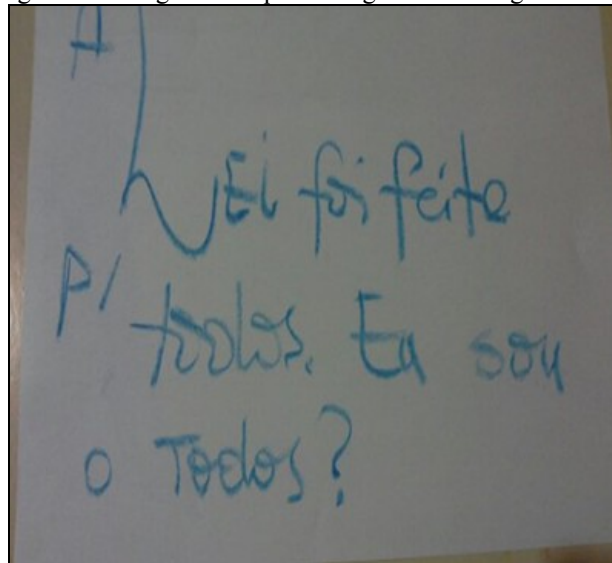 A
Lei foi feita
p/ todos. Eu sou
o Todos?